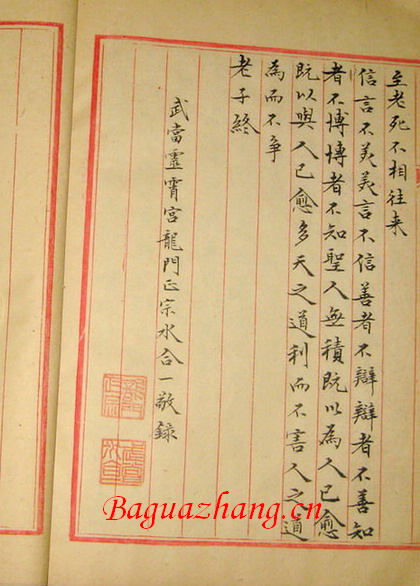 至老死不相往来
信言不美美言不信善者不辯辯者不善知
者不博博者不知聖人無積既以為人已愈
既以與人已愈多天之道利而不害人之道
為而不争
老子終
武當靈霄宮龍門正宗水合一敬錄
Baguazhang.cn